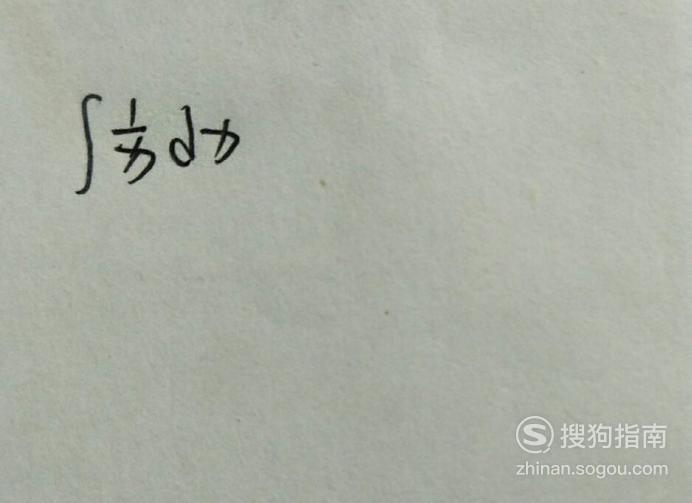 ∫ 1/x dx
搜狗指南
zhinan.sogou.com